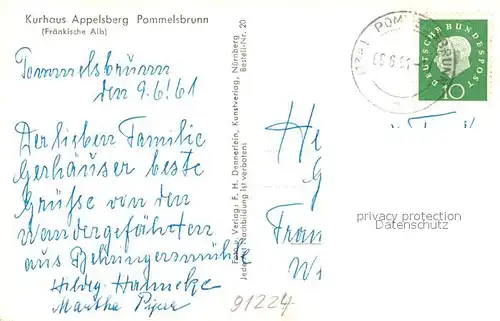 Kurhaus Appelsberg Pommelsbrunn
(Fränkische Alb)
Pommelsbrunn
den 9.6.61
Der lieben Familie
Gerhäuser beste
Grüsse von den
Wandergefährten
aus Behringersmühle
Hildeg. Hanneke
Martha
91224
Foto u. Verlag: F. H. Dannerlein, Kunstverlag, Nürnberg
Jede Art Nachbildung ist verboten
Bestell-Nr. 20
DEUTSCHE BUNDESPOST
10
He
Fran
privacy protection
Datenschutz